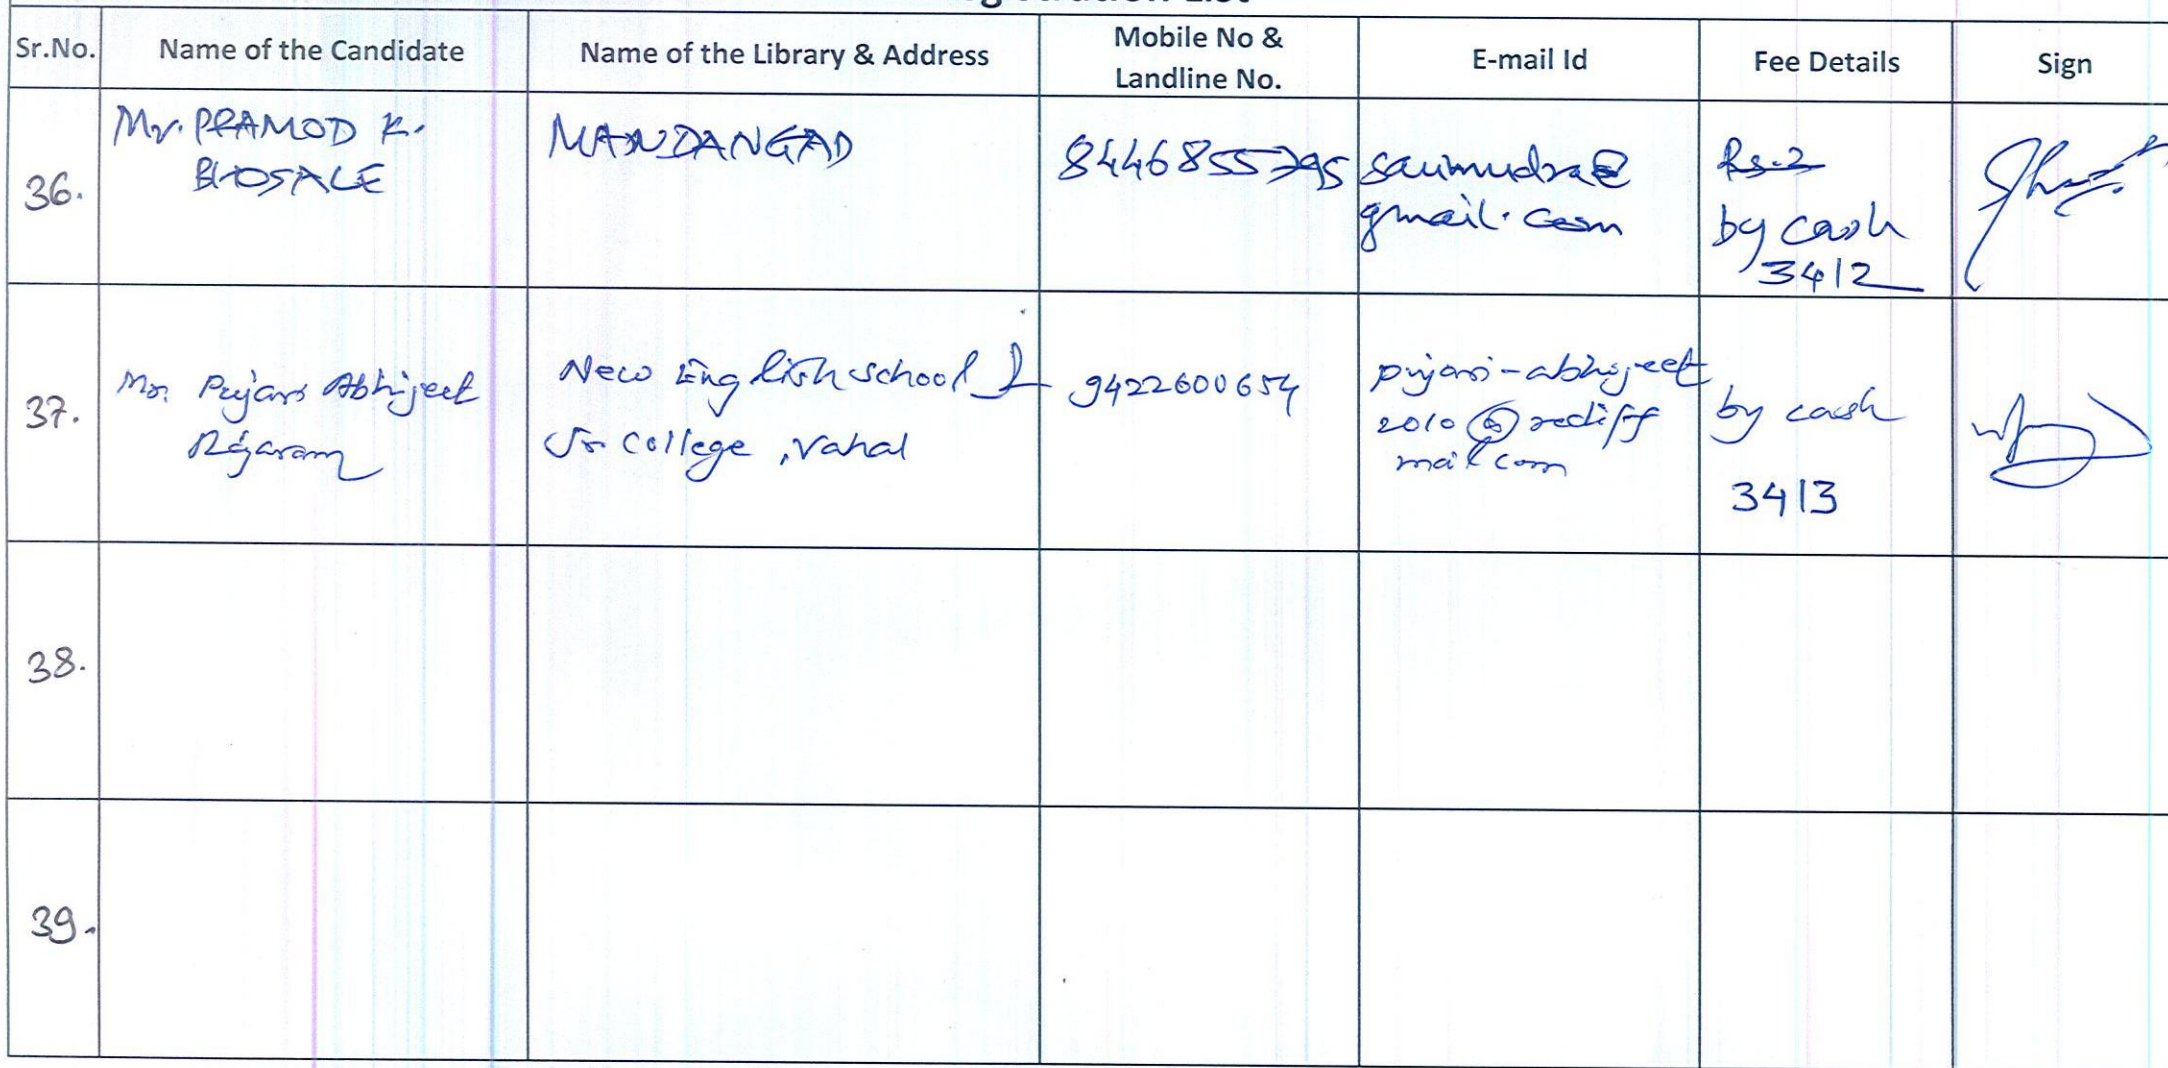 Registration List
Sr.No.
Name of the Candidate
Name of the Library & Address
Mobile No &
Landline No.
E-mail Id
Fee Details
Sign
36.
Mr. PRAMOD K.
BHOSALE
MANDANGAD
8446855795
saumudra@
gmail.com
Rs.2
by cash
3412
37.
Mr. Pujari Abhijeet
Rajaram
New English school &
Jr. College, Vahal
9422600654
pujari-abhijeet
2010@rediff
mail.com
by cash
3413
38.
39.